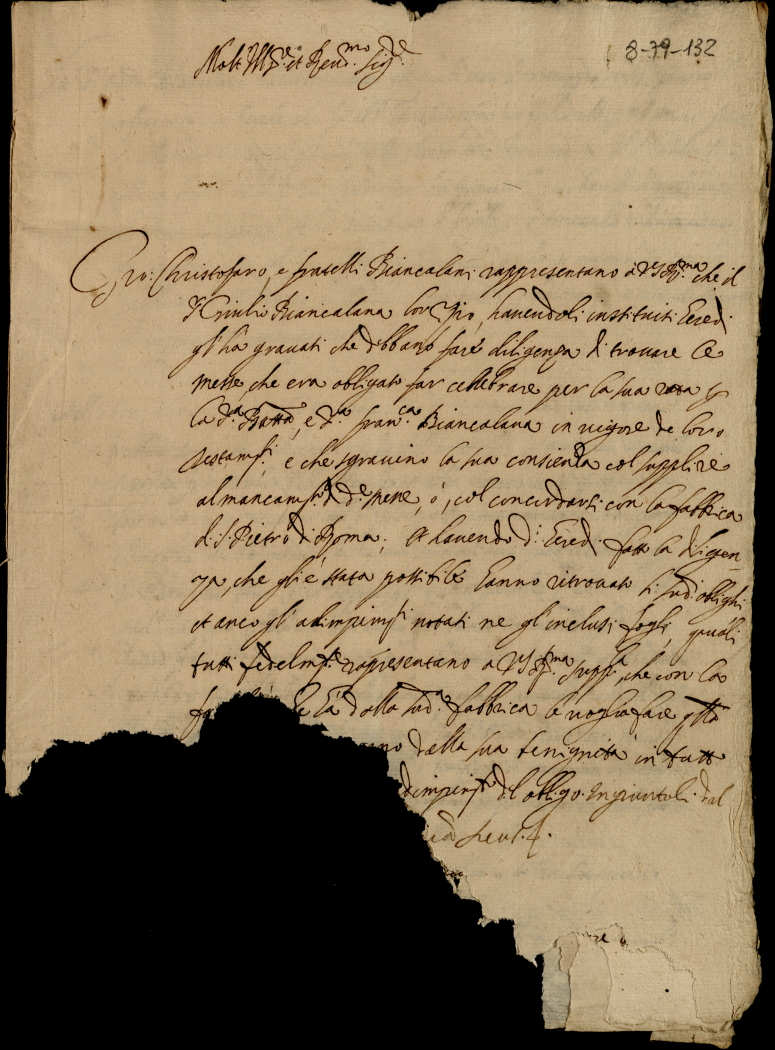 8-79-132
Molt Ill.re et Reu.mo Sig.re
Gio: Christofaro, e fratelli Biancalani rappresentano à VS R.ma che il
Giulio Biancalana lor Zio, hauendoli instituiti Eredi
gl'ha grauati che debbano fare diligenza di trouare le
messe, che era obligato far celebrare per la sua rata
la d.a e d.a Fran.ca Biancalana in uigore de loro
Testam.ti, e che sgrauino la sua conscienza col supplire
al mancam.to di d.e Messe, ò, col concordarsi con la fabbrica
di S. Pietro di Roma; et hauendo d.i Eredi fatto la diligen
za, che gl'è stata possibile hanno ritrouato li sud.i oblighi
et anco gl'adimpim.ti notati ne gl'inclusi fogli, quali
tutti fedelm.te rapresentano a VS R.ma supp.a che con la
dalla sud.a fabbrica le uoglia fare
della sua benignità in tutt
dimpim.to del obligo ingiuntoli dal